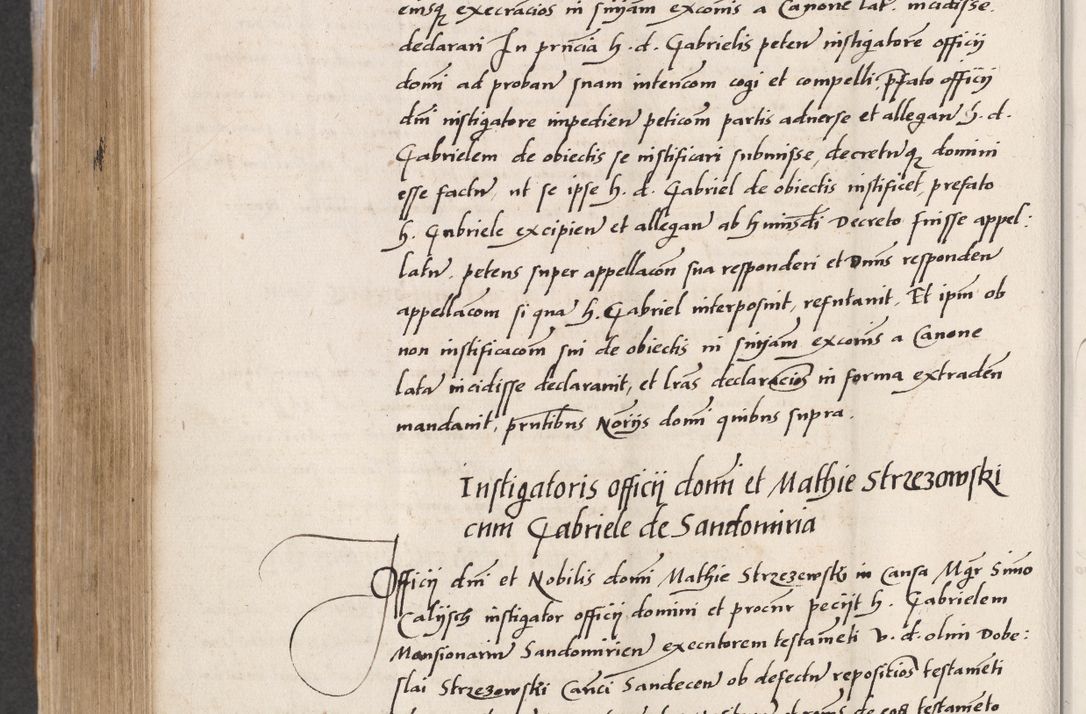 eiusq execracios in sniam exconis a Canone lat. incidisse.
declarari In prncia h. d. Gabrielis peten instigatore officij
domi ad proban suam intencom cogi et compelli, pfato officij
dni instigatore impedien peticom partis adverse et allegan h. d.
Gabrielem de obiectis se iustificari submisse, decretuq domini
esse factu, ut se ipse h. d. Gabriel de obiectis iustificet, prefato
h. Gabriele excipien et allegan ab huiusdi Decreto fuisse appel:
latu, petens super appellacon sua responderi et Dnus responden
appellacom si qua h. Gabriel interposuit, refutavit, Et ipm ob
non iustificacom sui de obiectis in sniam exconis a Canone
lata incidisse declaravit, et lras declaracios in forma extraden
mandavit, prntibus Norijs domi quibus supra.
Instigatoris officij domi et Mathie Strzezowski
cum Gabriele de Sandomiria
Officij dni et Nobilis domi Mathie Strzezewski in Causa Mgr Simo
Calijsch instigator officij domini et procur pecijt h. Gabrielem
Mansionariu Sandomirien executorem testameti v. d. olim Dobe:
slai Strzezowski Canci Sandecen ob defectu repositios testameti
de eod testameto